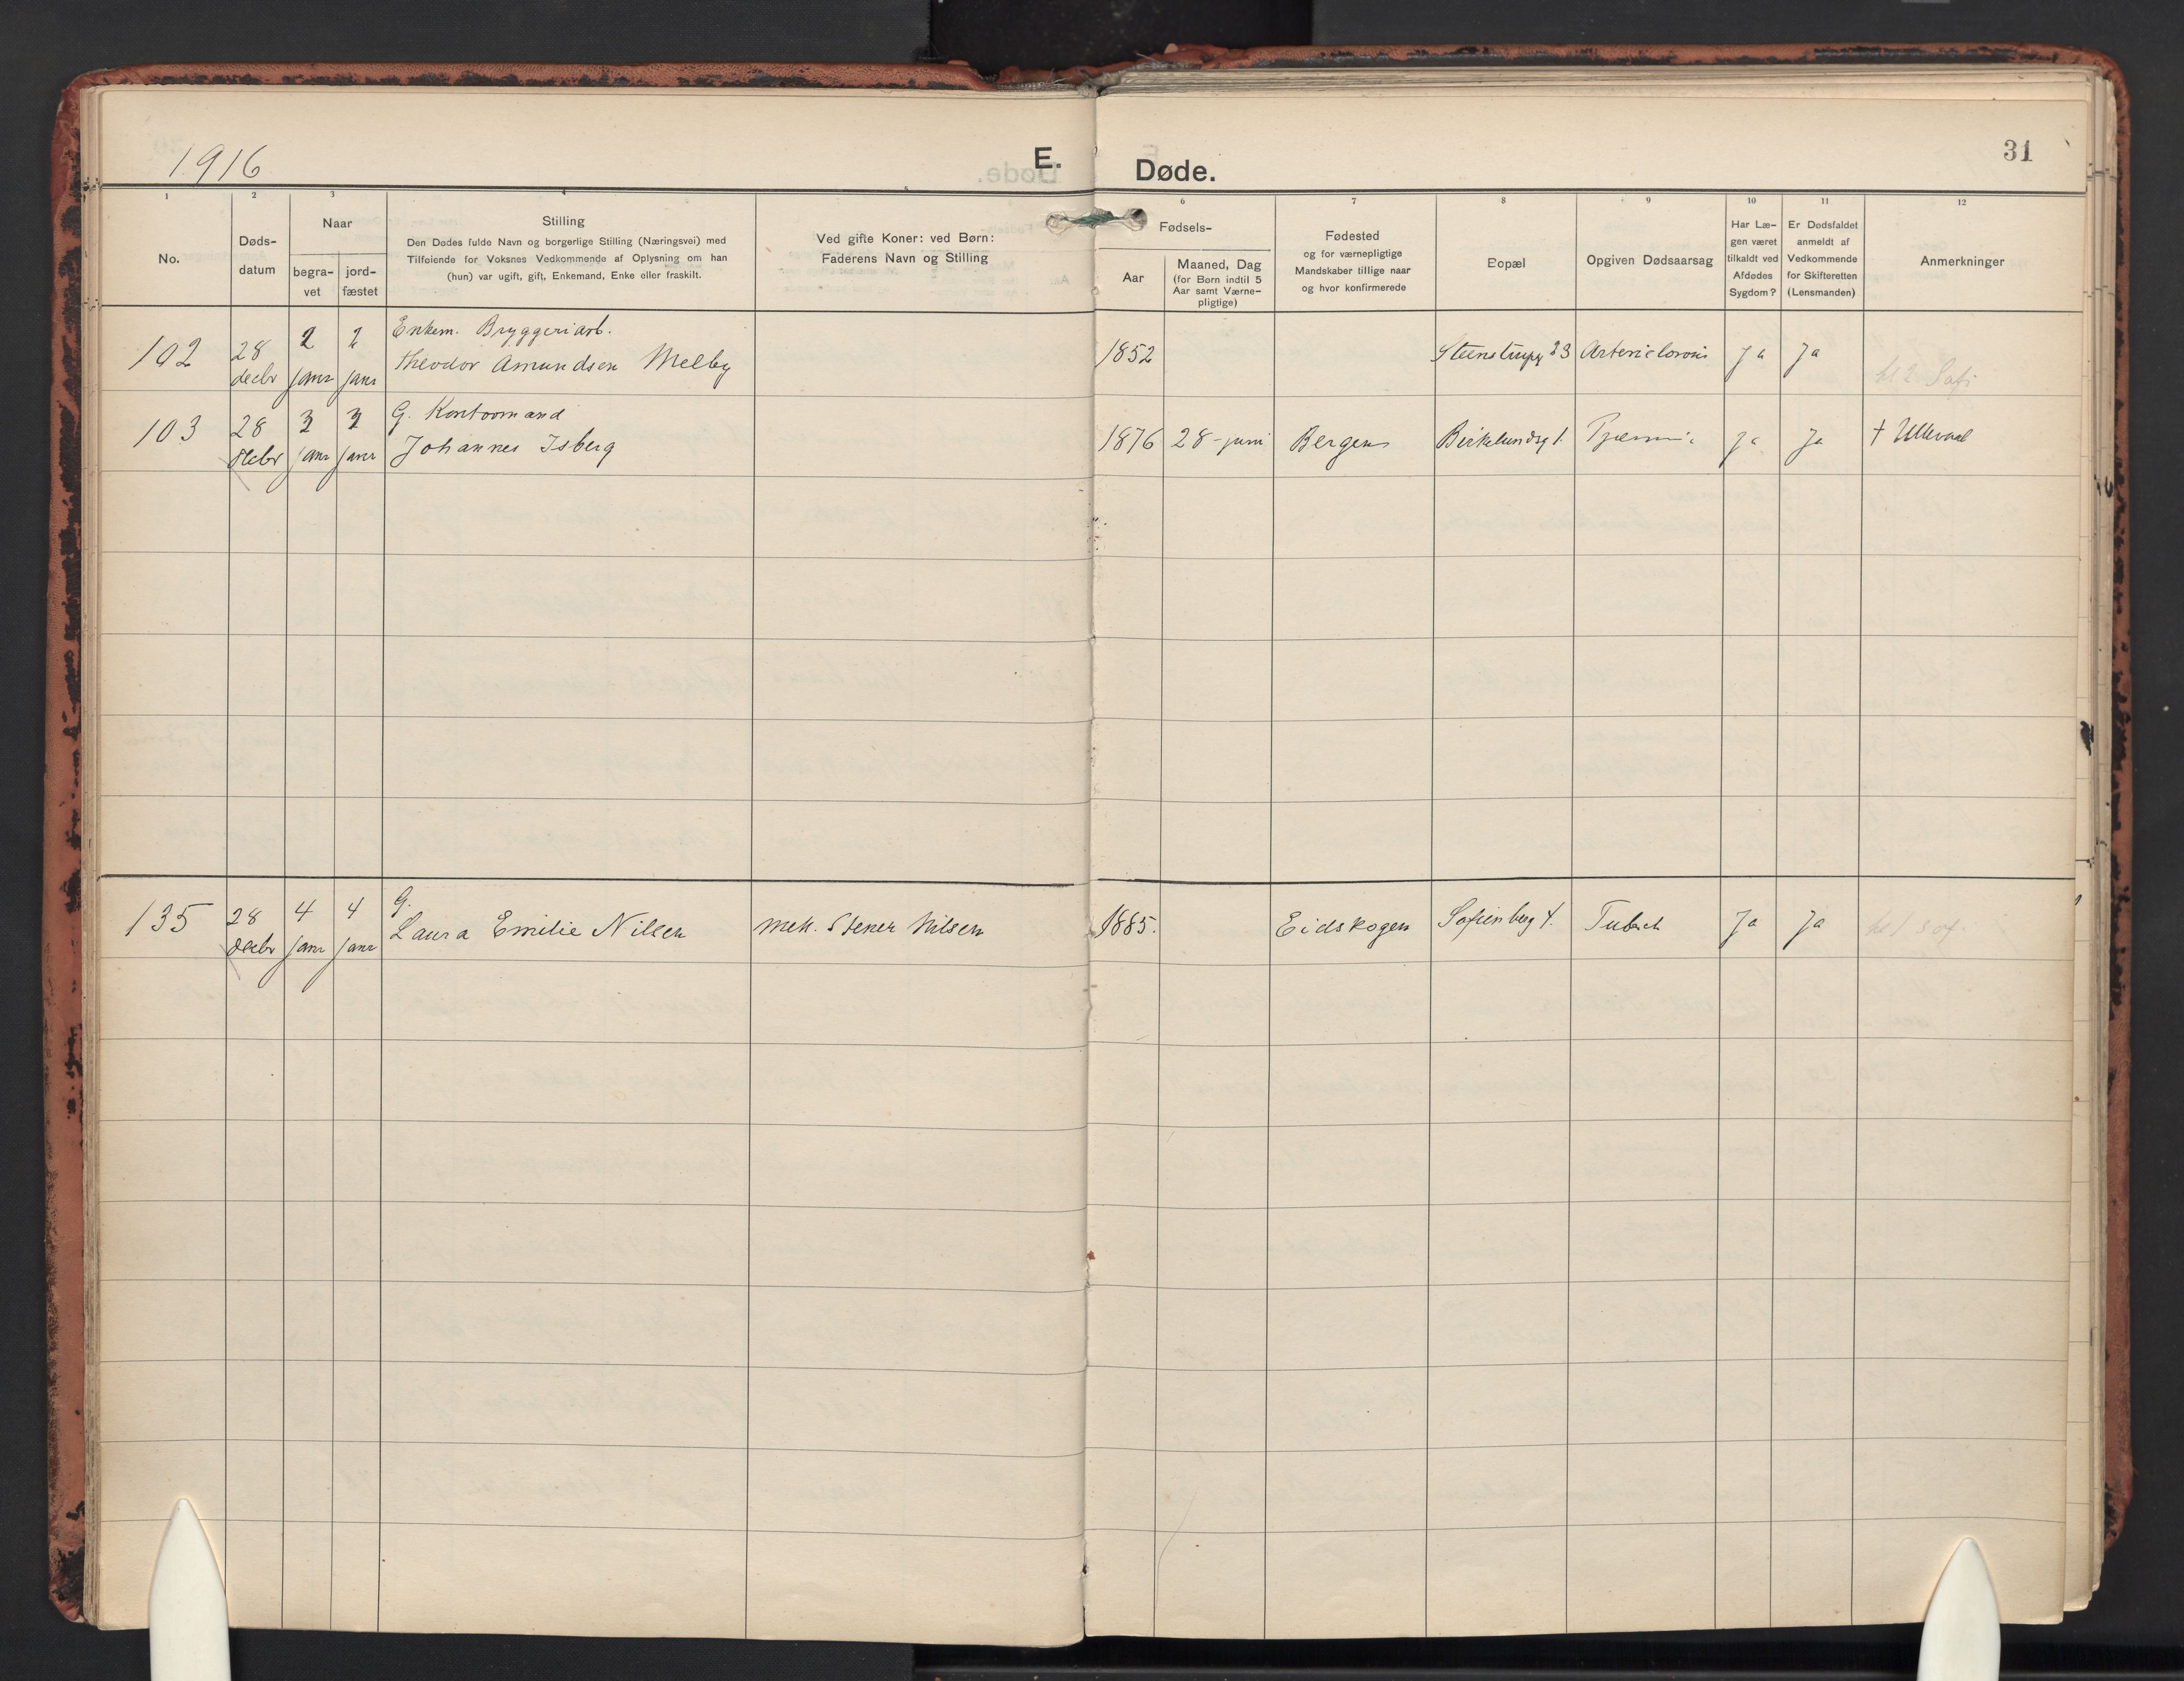 1916
E. Døde.
31
1 2 3 4 5 6 7 8 9 10 11 12
No.
Døds-
datum
Naar
begra-
vet
jord-
fæstet
Stilling
Den Dødes fulde Navn og borgerlige Stilling (Næringsvei) med
Tilføiende for Voksnes Vedkommende af Oplysning om han
(hun) var ugift, gift, Enkemand, Enke eller fraskilt.
Ved gifte Koner: ved Børn:
Faderens Navn og Stilling
Fødsels-
Aar
Maaned, Dag
(for Børn indtil 5
Aar samt Værne-
pligtige)
Fødested
og for værnepligtige
Mandskaber tillige naar
og hvor konfirmerede
Bopæl
Opgiven Dødsaarsag
Har Læ-
gen været
tilkaldt ved
Afdødes
Sygdom?
Er Dødsfaldet
anmeldt af
Vedkommende
for Skifteretten
(Lensmanden)
Anmerkninger
102
28
decbr
2
janr
2
janr
Enkem. Bryggeriarb.
Theodor Amundsen Melby
1852
Steenstrupg 23
Ja
Ja
103
28
decbr
3
janr
3
janr
G. Kontormand
Johannes Isberg
1876
28-juni
Bergen
Birkelundsg 1.
Ja
Ja
† Ullevaal
135
28
decbr
4
janr
4
janr
G.
Laura Emilie Nilsen
Mek. Stener Nilsen
1885.
Eidskogen
Sofienberg 4.
Tuberk
Ja
Ja